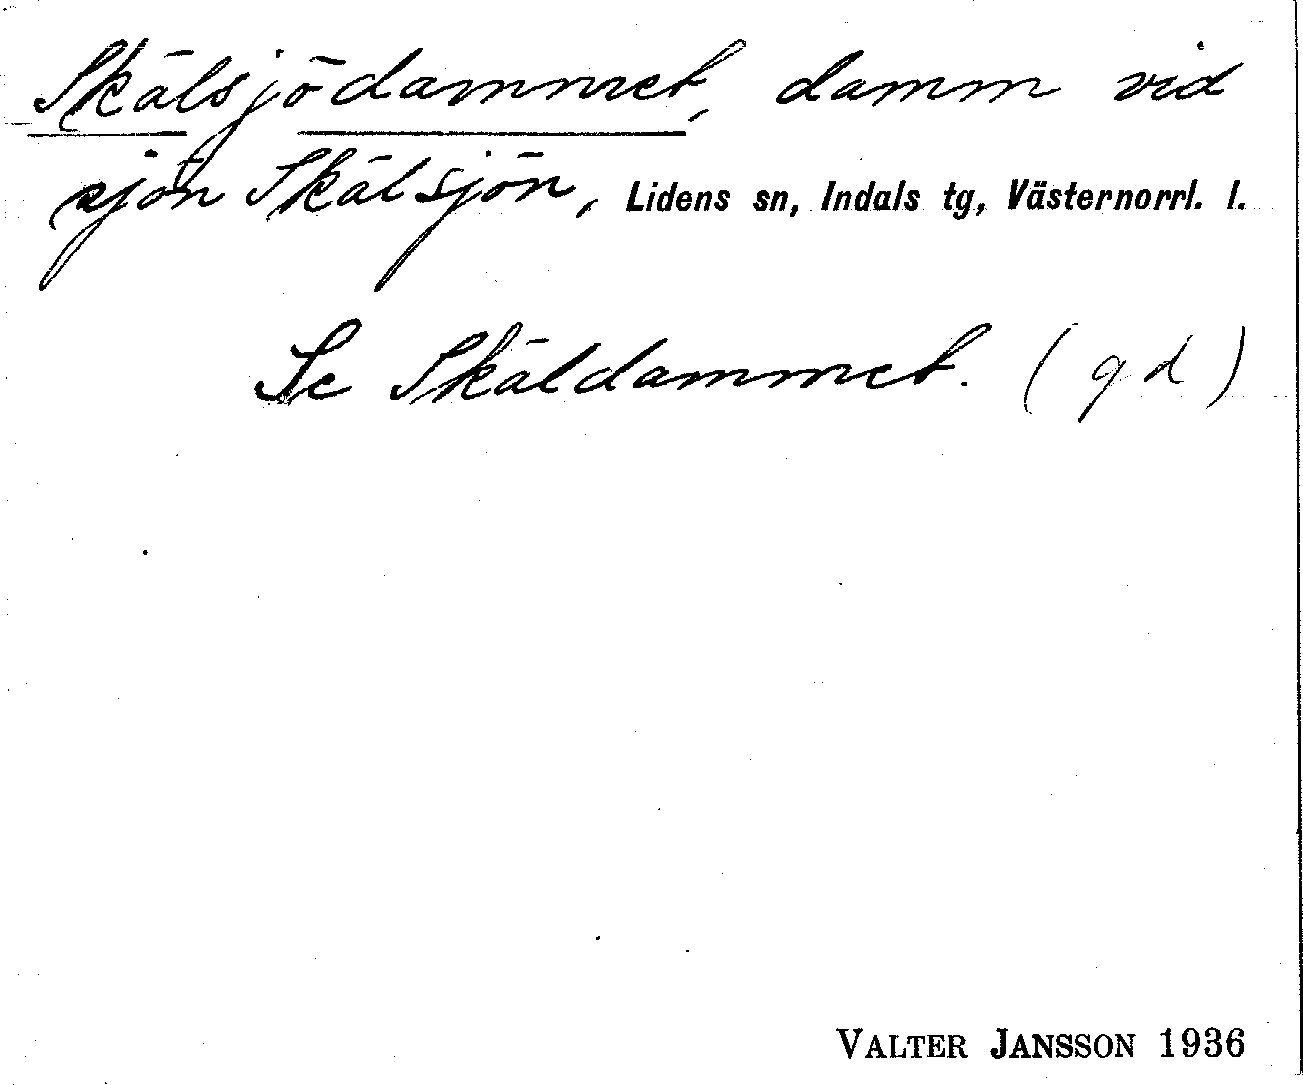 Skälsjödammet, damm vid
sjön Skälsjön, Lidens sn, Indals tg, Västernorrl. l.
Se Skäldammet. (gd)
VALTER JANSSON 1936